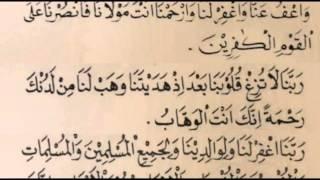 وَاعْفُ عَنَّا وَاغْفِرْ لَنَا وَارْحَمْنَا أَنْتَ مَوْلَانَا فَانْصُرْنَا عَلَى
الْقَوْمِ الْكَافِرِيْنَ.
رَبَّنَا لَا تُزِغْ قُلُوْبَنَا بَعْدَ إِذْ هَدَيْتَنَا وَهَبْ لَنَا مِنْ لَدُنْكَ
رَحْمَةً إِنَّكَ أَنْتَ الْوَهَّابُ.
رَبَّنَا اغْفِرْ لَنَا وَلِوَالِدِيْنَا وَلِجَمِيْعِ الْمُسْلِمِيْنَ وَالْمُسْلِمَاتِ